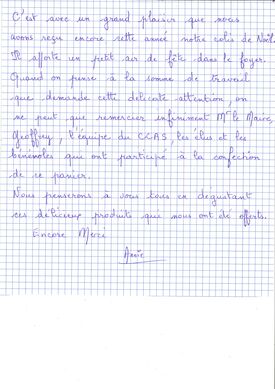 C'est avec un grand plaisir que nous
avons reçu encore cette année notre colis de Noël.
Il apporte un petit air de fête dans le foyer.
Quand on pense à la somme de travail
que demande cette délicate attention, on
ne peut que remercier infiniment Mr le Maire,
Geoffrey, l'équipe du CCAS, les élus et les
bénévoles qui ont participé à la confection
de ce panier.
Nous penserons à vous tous en dégustant
ces délicieux produits qui nous ont été offerts.
Encore Merci
Annie